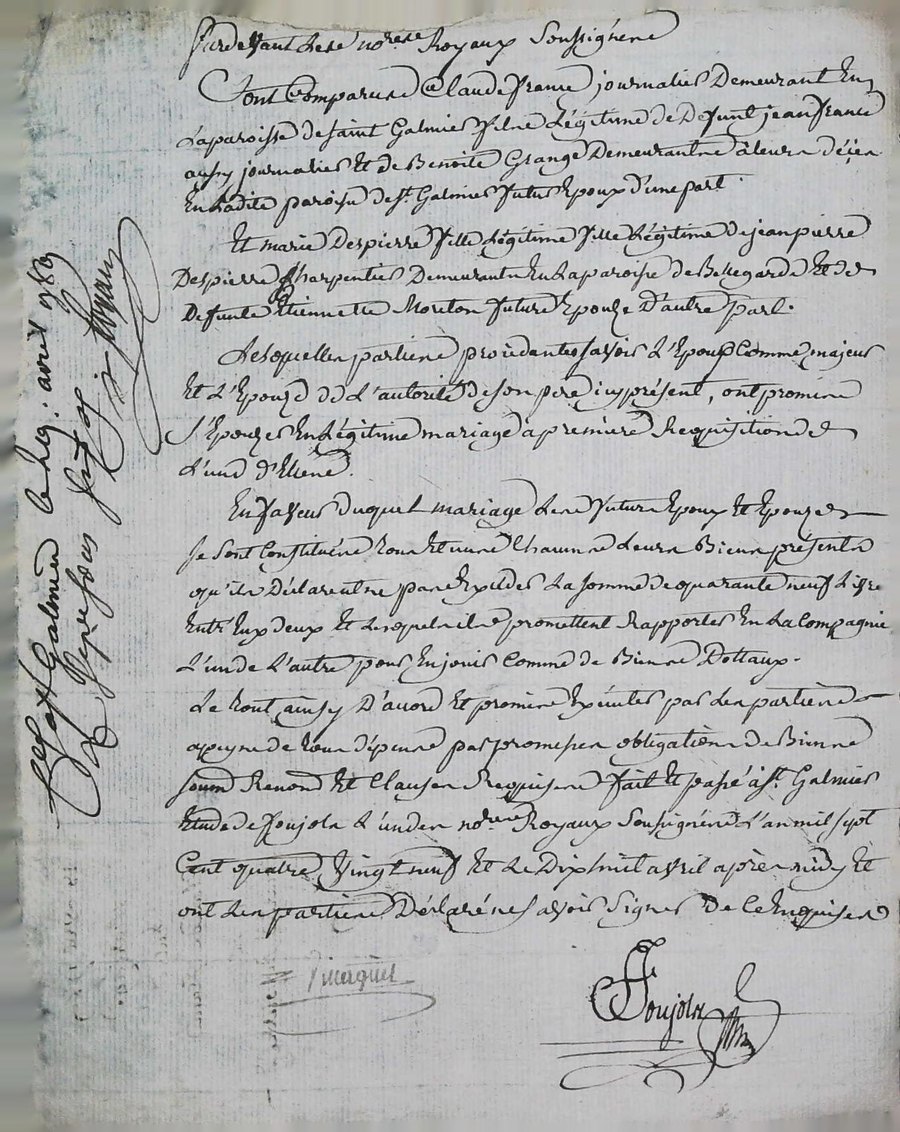 Pardevant Les no.res Royaux Soussignés
Sont Comparus Claude france journalier Demeurant En
La paroisse de saint Galmier fils Légitime de Defunt jean france
aussy journalier Et de Benoite Grange Demeurant
En Ladite paroisse de S.t Galmier futur Epoux d'une part
Et marie Despierre fille Légitime fille Légitime de jean pierre
Despierre Charpentier Demeurant En La paroisse de Bellegarde Et de
Defunte Etiennette Moriton future Epouze D'autre part.
Lesquelles parties procédantes savoir L'Epoux Comme majeur
Et L'Epouze de L'autorité de son pere icy présent, ont promis
s'Epouzer En Légitime mariage a premiere Requisition de
L'un d'Eux
En faveur duquel mariage Les futurs Epoux Et Epouze
se sont Constitués tous Et uns Chacuns Leurs Biens présents
qu'ils Déclarent ne pas Exceder La somme de quarante neuf Livre
Entr'Eux deux Et Lesquels ils promettent Rapporter En La Compagnie
L'un de L'autre pour En jouir Comme de Biens Dottaux.
Le tout ainsy D'acord Et promis Exécuter par Les parties
a peyne de tous dépens par promesses obligations de Biens
soum Renond Et Clauses Requises fait Et passé à S.t Galmier
Etude de Foujols L'un des no.res Royaux Soussignés L'an mil sept
Cent quatre Vingt neuf Et Le Dix huit avril après midy Et
ont Les parties Déclaré ne savoir Signer De Ce Enquises
Foujols
S.t Galmier Le avril 1789